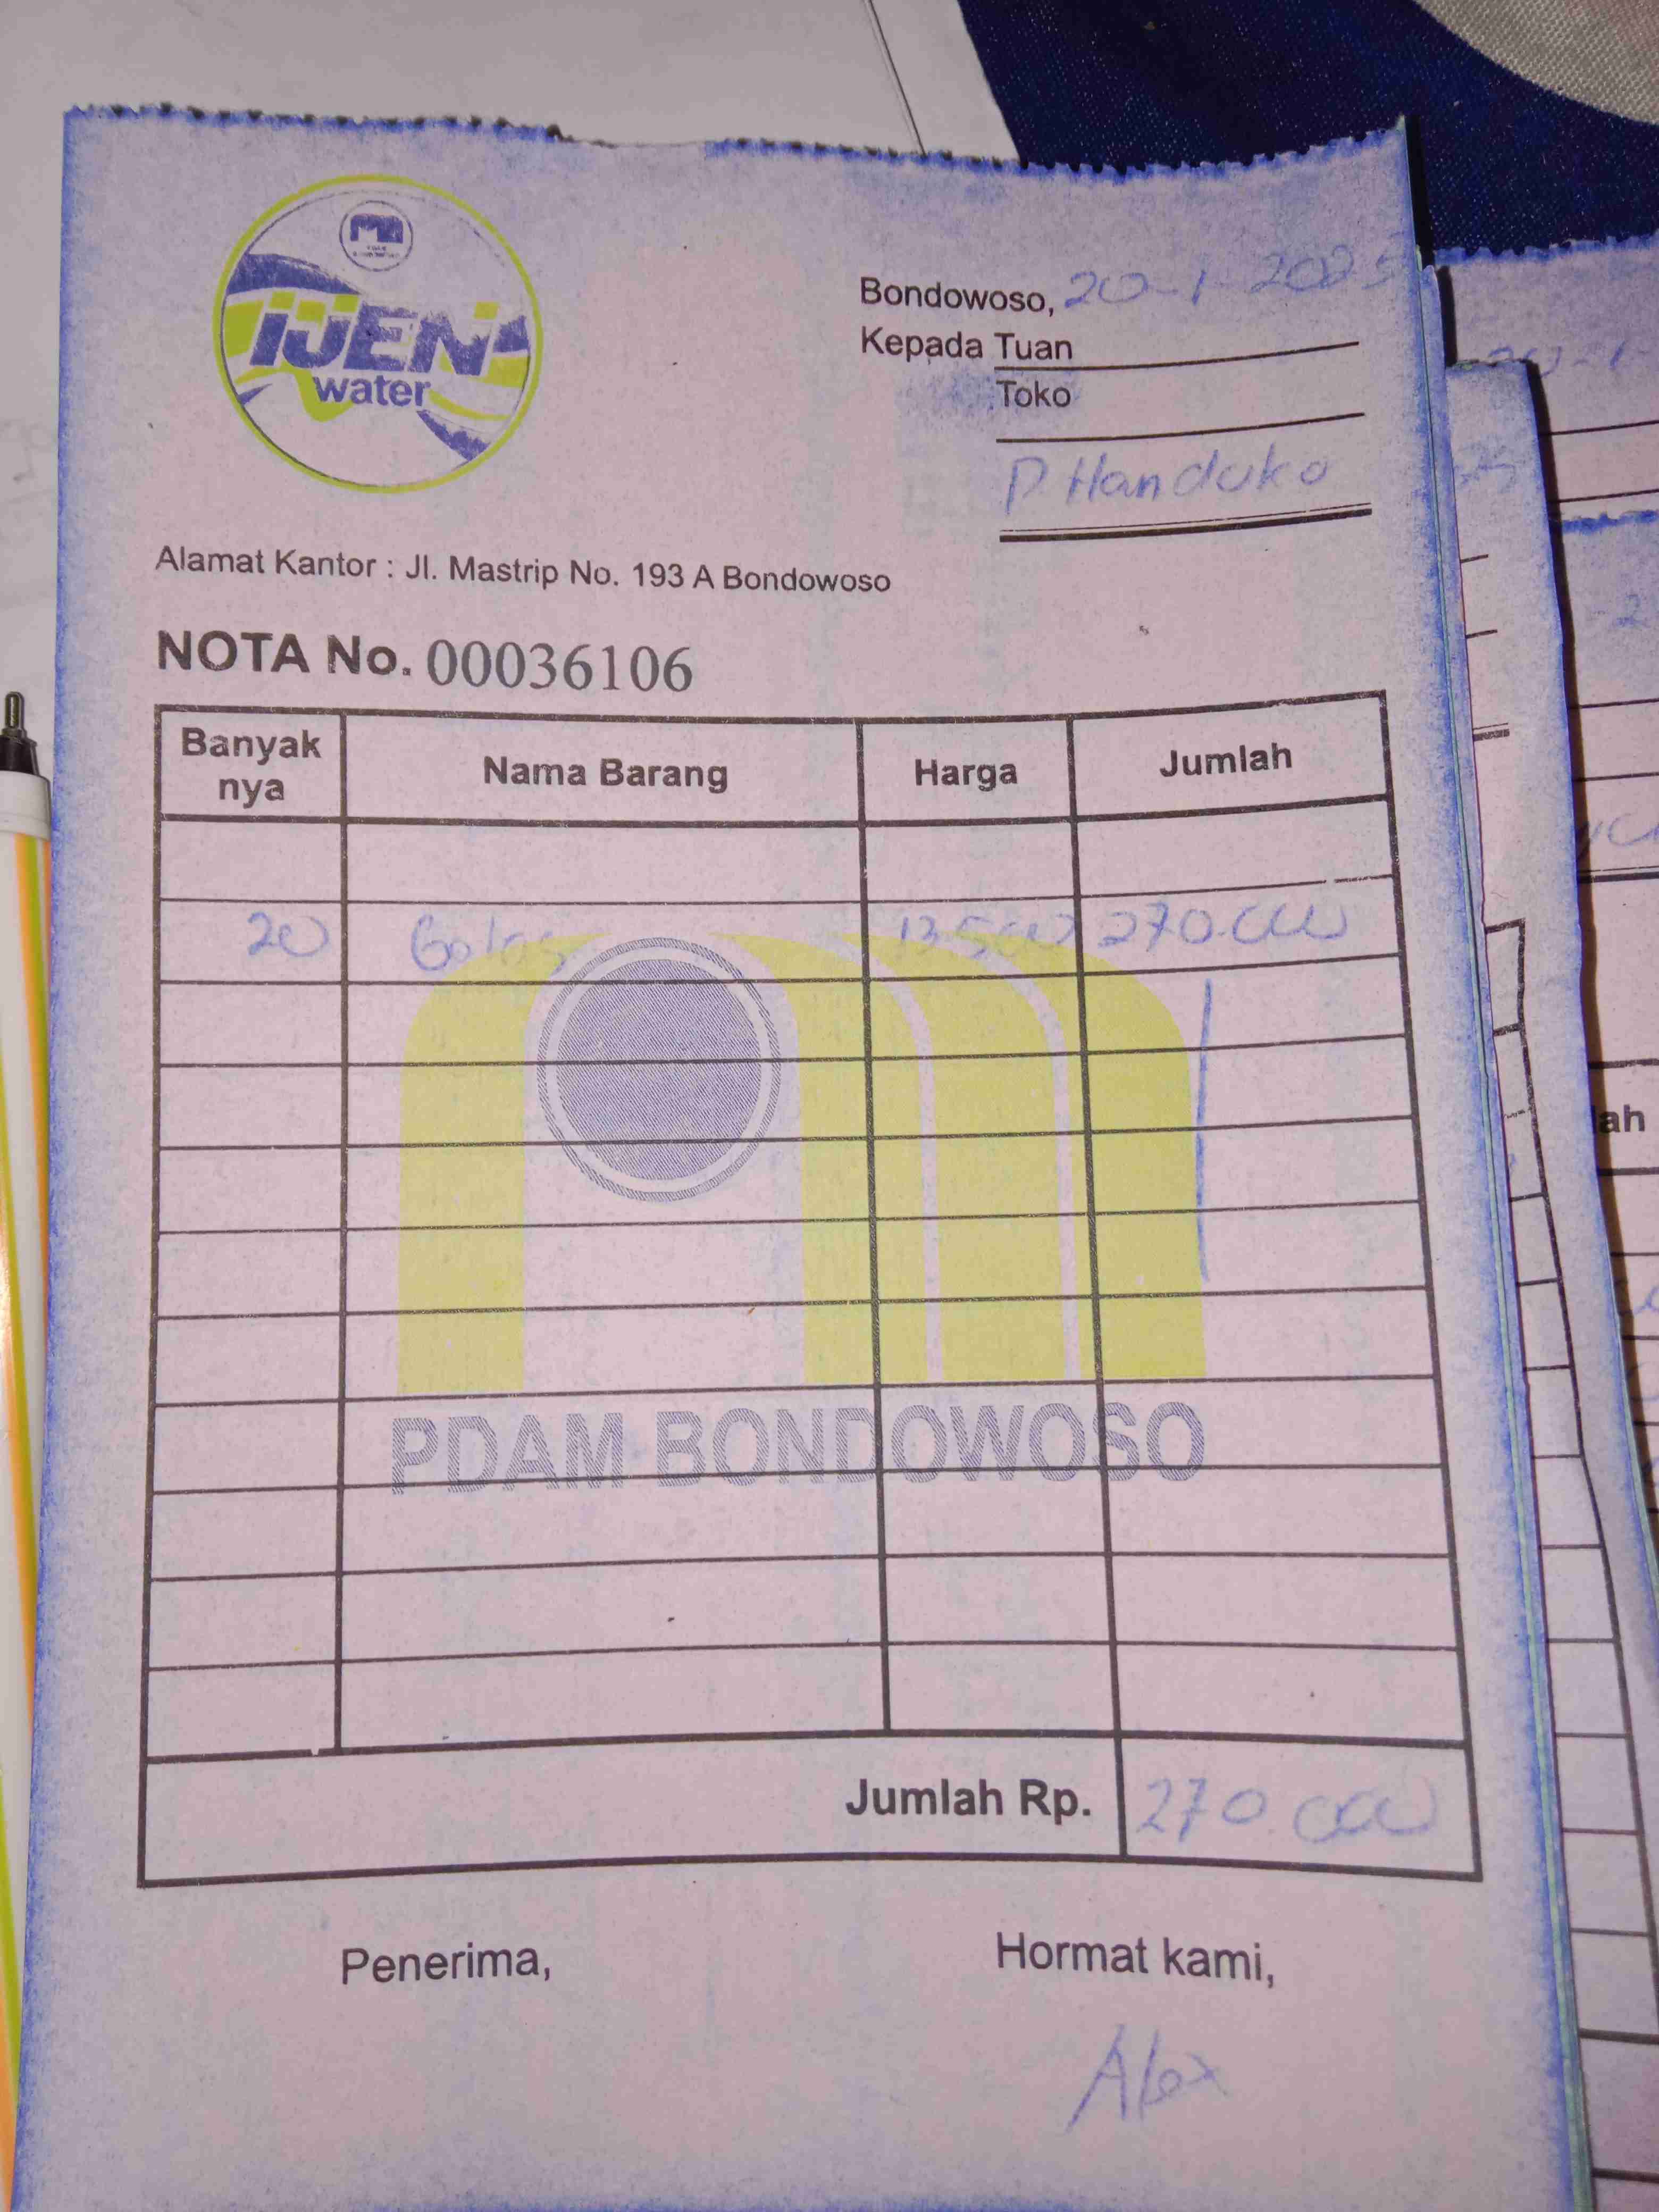 IJEN
water
Bondowoso, 20-1-2025
Kepada Tuan
Toko
P. Handuko
Alamat Kantor : Jl. Mastrip No. 193 A Bondowoso
NOTA No. 00036106
Banyak nya Nama Barang Harga Jumlah
20 Gelas 13.500 270.000
PDAM BONDOWOSO
Jumlah Rp. 270.000
Penerima, Hormat kami,
Alex
ah